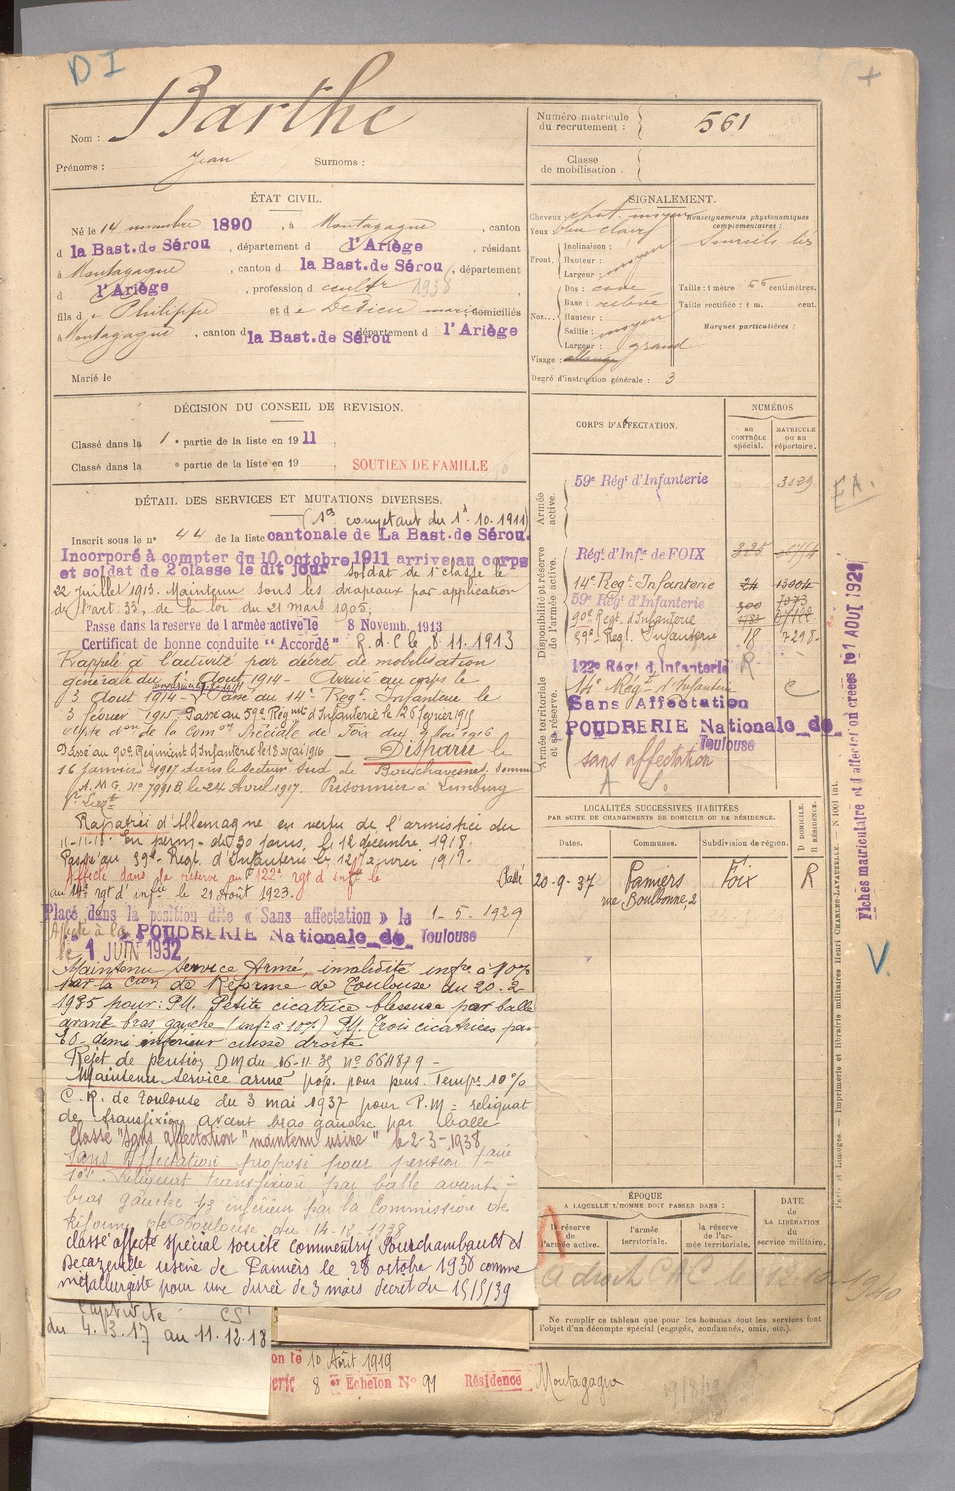 D I
Nom : Barthe
Prénoms : Jean Surnoms :
Numéro matricule du recrutement : 561
Classe de mobilisation .
ÉTAT CIVIL.
Né le 14 novembre 1890 , à Montagagne , canton
d la Bast. de Sérou , département d l'Ariège , résidant
à Montagagne , canton d la Bast. de Sérou , département
d l'Ariège , profession d cultr 1938
fils d e Philippe et d e domiciliés
à Montagagne , canton d la Bast. de Sérou département d l'Ariège
Marié le
SIGNALEMENT.
Cheveux chat. moyen
Yeux bleu clair
Front. Inclinaison :
Hauteur : moyen
Largeur : moyen
Nez. Dos : cave
Base : relevé
Hauteur :
Saillie : moyen
Largeur : grand
Visage :
Degré d'instruction générale : 3
Renseignements physionomiques complémentaires :
Sourcils liés
Taille : 1 mètre 66 centimètres.
Taille rectifiée : 1 m. cent.
Marques particulières :
DÉCISION DU CONSEIL DE REVISION.
Classé dans la 1 e partie de la liste en 1911
Classé dans la e partie de la liste en 19 SOUTIEN DE FAMILLE
DÉTAIL DES SERVICES ET MUTATIONS DIVERSES.
comptant du 1er.10.1911
Inscrit sous le n° 44 de la liste cantonale de La Bast. de Sérou.
Incorporé à compter du 10 octobre 1911 arrive au corps
et soldat de 2 classe le dit jour soldat de 1e classe le
22 juillet 1913. Maintenu sous les drapeaux par application
de l'art. 33, de la loi du 21 mars 1905,
Passe dans la reserve de l'armée active le 8 Novemb. 1913
Certificat de bonne conduite “ Accordé ” R.d.C le 8.11.1913
Rappelé à l'activité par décret de mobilisation
générale du 1er Août 1914 - Arrivé au corps le
3 Aout 1914 - Passé au 14e Regt Infanterie le
3 février 1915 Passé au 59e Régmt d'Infanterie le 26 février 1915
de la Comon Spéciale de Foix du 9 Mai 1916
Passé au 90e Regiment d'Infanterie le 18 Mai 1916 - Disparu le
16 janvier 1917 dans le secteur Sud de Bouchavesnes Somme
A.M.G. no 7991B le 24 Avril 1917. Prisonnier à Limburg
Rapatrié d'Allemagne en vertu de l'armistice du
11-11-18. En perm. de 30 jours, le 12 décembre, 1918.
Passé au 59e Regt d'Infanterie le 12 janvier 1919.
Affecté dans la réserve au 122e rgt d infie le Classé
au 14e rgt d' infie le 21 Août 1923.
Placé dans la position dite « Sans affectation » le 1-5-1929
Affecté à la POUDRERIE Nationale de Toulouse
le 1 JUIN 1932
Maintenu Service Armé, invalidité infre à 10%
par la Cion de Réforme de Toulouse du 20-2-
1935 pour : P.M. Petite cicatrice blessure par balle
avant bras gauche (infr à 10%) P.M. Trois cicatrices par
E.O. demi inférieur cuisse droite
Rejet de pension D.M du 16-11-35 No 664879 -
Maintenu Service armé prop. pour pens. Tempre 10%
C.R. de Toulouse du 3 mai 1937 pour P.M = reliquat
de transfixion avant bras gauche par balle
Classé "sans affectation" "maintenu usine" le 2-3-1938
Sans affectation proposé pour pension
10% Reliquat transfixion par balle avant-
bras gauche 1/3 inférieur par la Commission de
Réforme de Toulouse du 14-12-1938
classé affecté spécial société Commentry Fourchambault et
Decazeville usine de Pamiers le 28 octobre 1938 comme
métallurgiste pour une durée de 3 mois décret du 15/5/39
Captivité CSt
du 4.13.17 au 11.12.18
10 Août 1919
8 er Echelon N° 91 Résidence Montagagne
CORPS D'AFFECTATION.
NUMÉROS
AU CONTRÔLE spécial.
MATRICULE OU AU répertoire.
Armée active.
59e Régt d'Infanterie 3129
Disponibilité et réserve de l'armée active.
Régt d'Infie de FOIX 325
14e Regt Infanterie 24 13004
59e Régt d'Infanterie 300 7073
90e Regt d'Infanterie
59e Regt Infanterie 18 7298
Armée territoriale et sa réserve.
122e Régt d Infanterie R
14e Régt d'Infanterie C
Sans Affectation
POUDRERIE Nationale de Toulouse
sans affectation
A S.
E A.
LOCALITÉS SUCCESSIVES HABITÉES
PAR SUITE DE CHANGEMENTS DE DOMICILE OU DE RÉSIDENCE.
Dates. Communes. Subdivision de région. D DOMICILE. R RÉSIDENCE.
20-9-37 Pamiers Foix R
rue Boulbonne, 2
ÉPOQUE
A LAQUELLE L'HOMME DOIT PASSER DANS :
la réserve de l'armée active.
l'armée territoriale.
la réserve de l'armée territoriale.
DATE DE LA LIBÉRATION DU service militaire.
A droit CAC le 1940
Ne remplir ce tableau que pour les hommes dont les services font
l'objet d'un décompte spécial (engagés, condamnés, omis, etc.).
Fiches matriculaire et d affectation créées le 1 AOUT 1929
V.
Paris et Limoges. — Imprimerie et librairie militaires Henri CHARLES-LAVAUZELLE. — N° 1001 int.